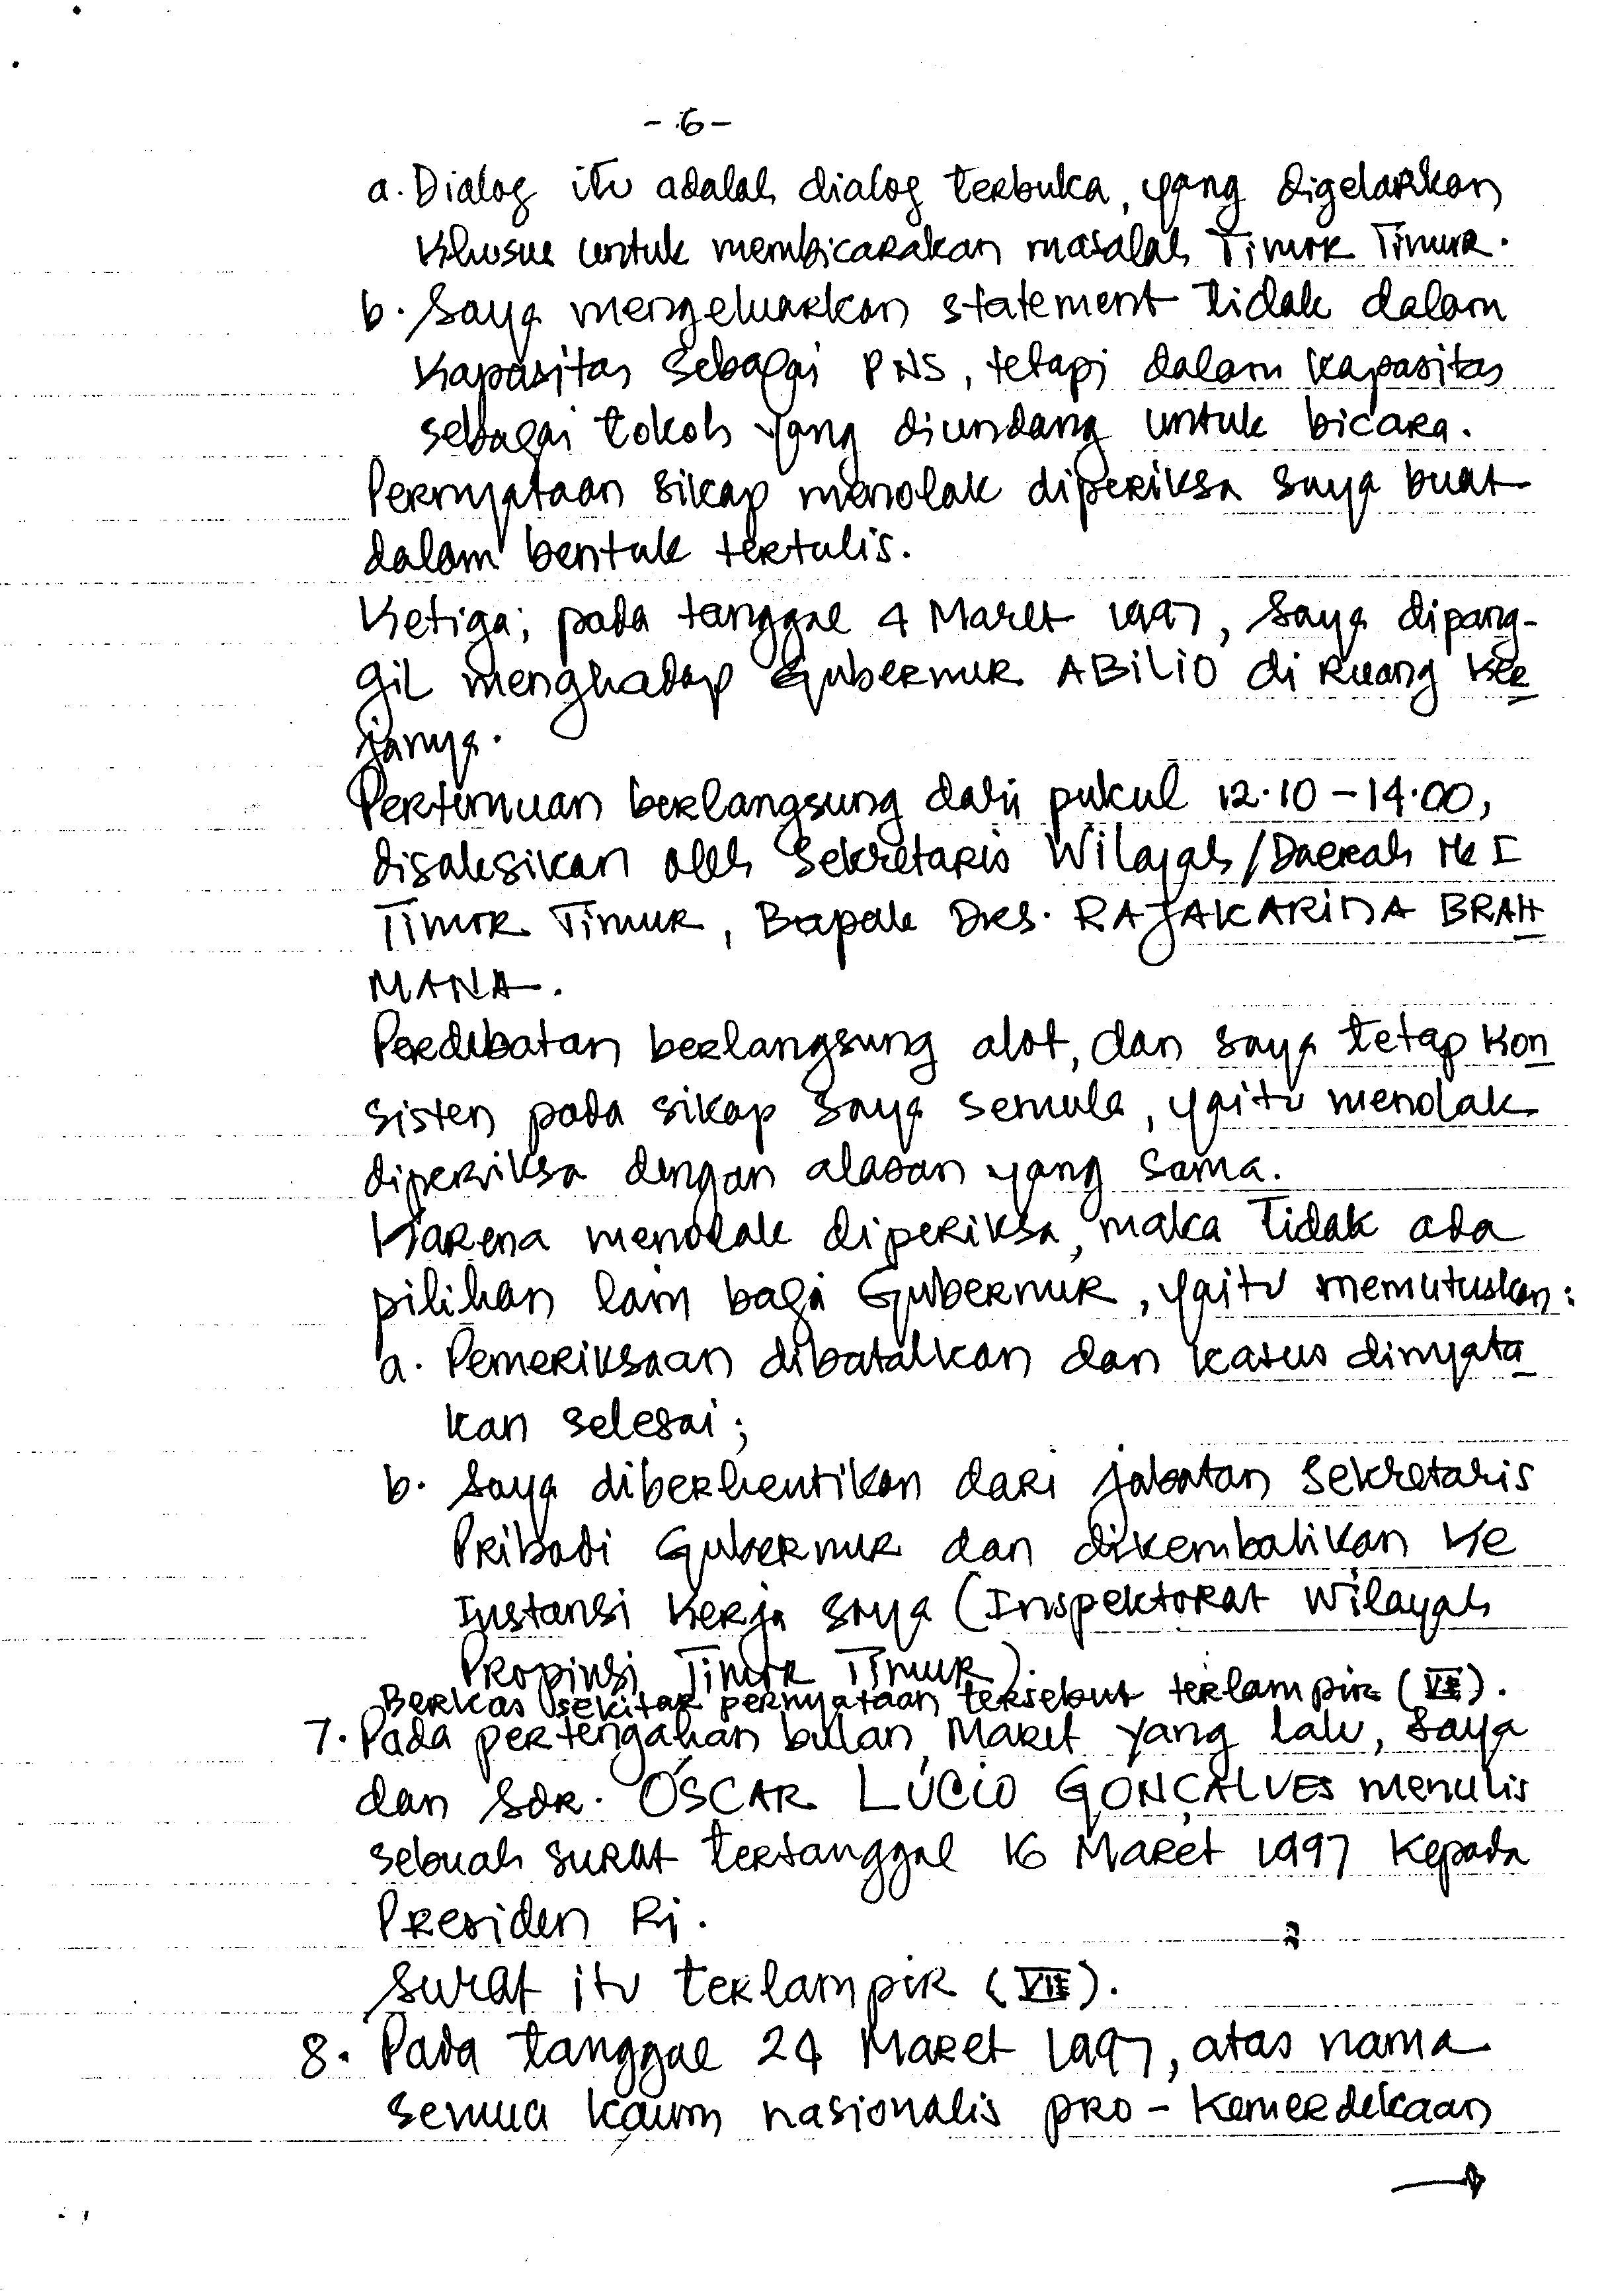 - 6 -
a. Dialog itu adalah dialog terbuka, yang digelarkan
khusus untuk membicarakan masalah Timor Timur.
b. Saya mengeluarkan statement tidak dalam
kapasitas sebagai PNS, tetapi dalam kapasitas
sebagai tokoh yang diundang untuk bicara.
Pernyataan sikap menolak diperiksa saya buat
dalam bentuk tertulis.
Ketiga; pada tanggal 4 Maret 1997, saya dipang-
gil menghadap Gubernur ABILIO di ruang ker
janya.
Pertemuan berlangsung dari pukul 12.10 - 14.00,
disaksikan oleh Sekretaris Wilayah/Daerah Tk I
Timor Timur, Bapak Drs. RAJAKARINA BRAH
MANA.
Perdebatan berlangsung alot, dan saya tetap kon
sisten pada sikap saya semula, yaitu menolak
diperiksa dengan alasan yang sama.
Karena menolak diperiksa, maka tidak ada
pilihan lain bagi Gubernur, yaitu memutuskan:
a. Pemeriksaan dibatalkan dan kasus dinyata
kan selesai;
b. Saya diberhentikan dari jabatan Sekretaris
Pribadi Gubernur dan dikembalikan ke
Instansi kerja saya (Inspektorat Wilayah
Propinsi Timor Timur).
Berkas sekitar pernyataan tersebut terlampir (VI).
7. Pada pertengahan bulan Maret yang lalu, saya
dan Sdr. ÓSCAR LÚCIO GONÇALVES menulis
sebuah surat tertanggal 16 Maret 1997 kepada
Presiden RI.
Surat itu terlampir (VII).
8. Pada tanggal 24 Maret 1997, atas nama
semua kaum nasionalis pro-kemerdekaan
→